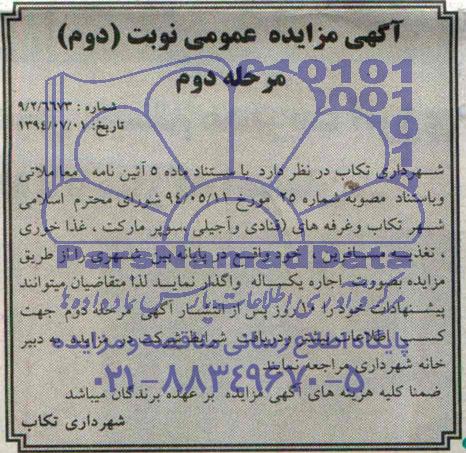 آگهی مزایده عمومی نوبت (دوم)
مرحله دوم
شماره : ۹/۲/۶۶۷۳
تاریخ: ۱۳۹۴/۰۷/۰۱
شهرداری تکاب در نظر دارد باستناد ماده ۵ آئین نامه معاملاتی
وباستناد مصوبه شماره ۲۵ مورخ ۹۴/۰۵/۱۱ شورای محترم اسلامی
شهر تکاب وغرفه های (قنادی وآجیلی ،سوپر مارکت ، غذا خوری
، تغذیه مسافرین ، خود واقع در پایانه بین شهری را از طریق
مزایده بصورت اجاره یکساله واگذار نمایند لذا متقاضیان میتوانند
پیشنهادات خود را ۱۰ روز پس از انتشار آگهی مرحله دوم جهت
کسب اطلاعات بیشتر ودریافت شرایط شرکت در مزایده به دبیر
خانه شهرداری مراجعه نمایند
ضمنا کلیه هزینه های آگهی مزایده بر عهده برندگان میباشد
شهرداری تکاب
ParsNamadData
مرکز فرآوری اطلاعات پارس نماد داده ها
پایگاه اطلاع رسانی مناقصه و مزایده
۰۲۱-۸۸۳۴۹۶۷۰-۵